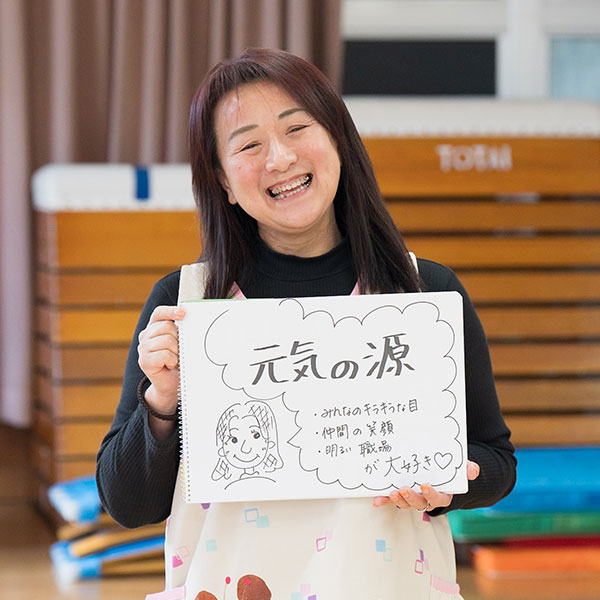 TOTAI
元気の源
・みんなのキラキラな目
・仲間の笑顔
・明るい職場
が大好き♡